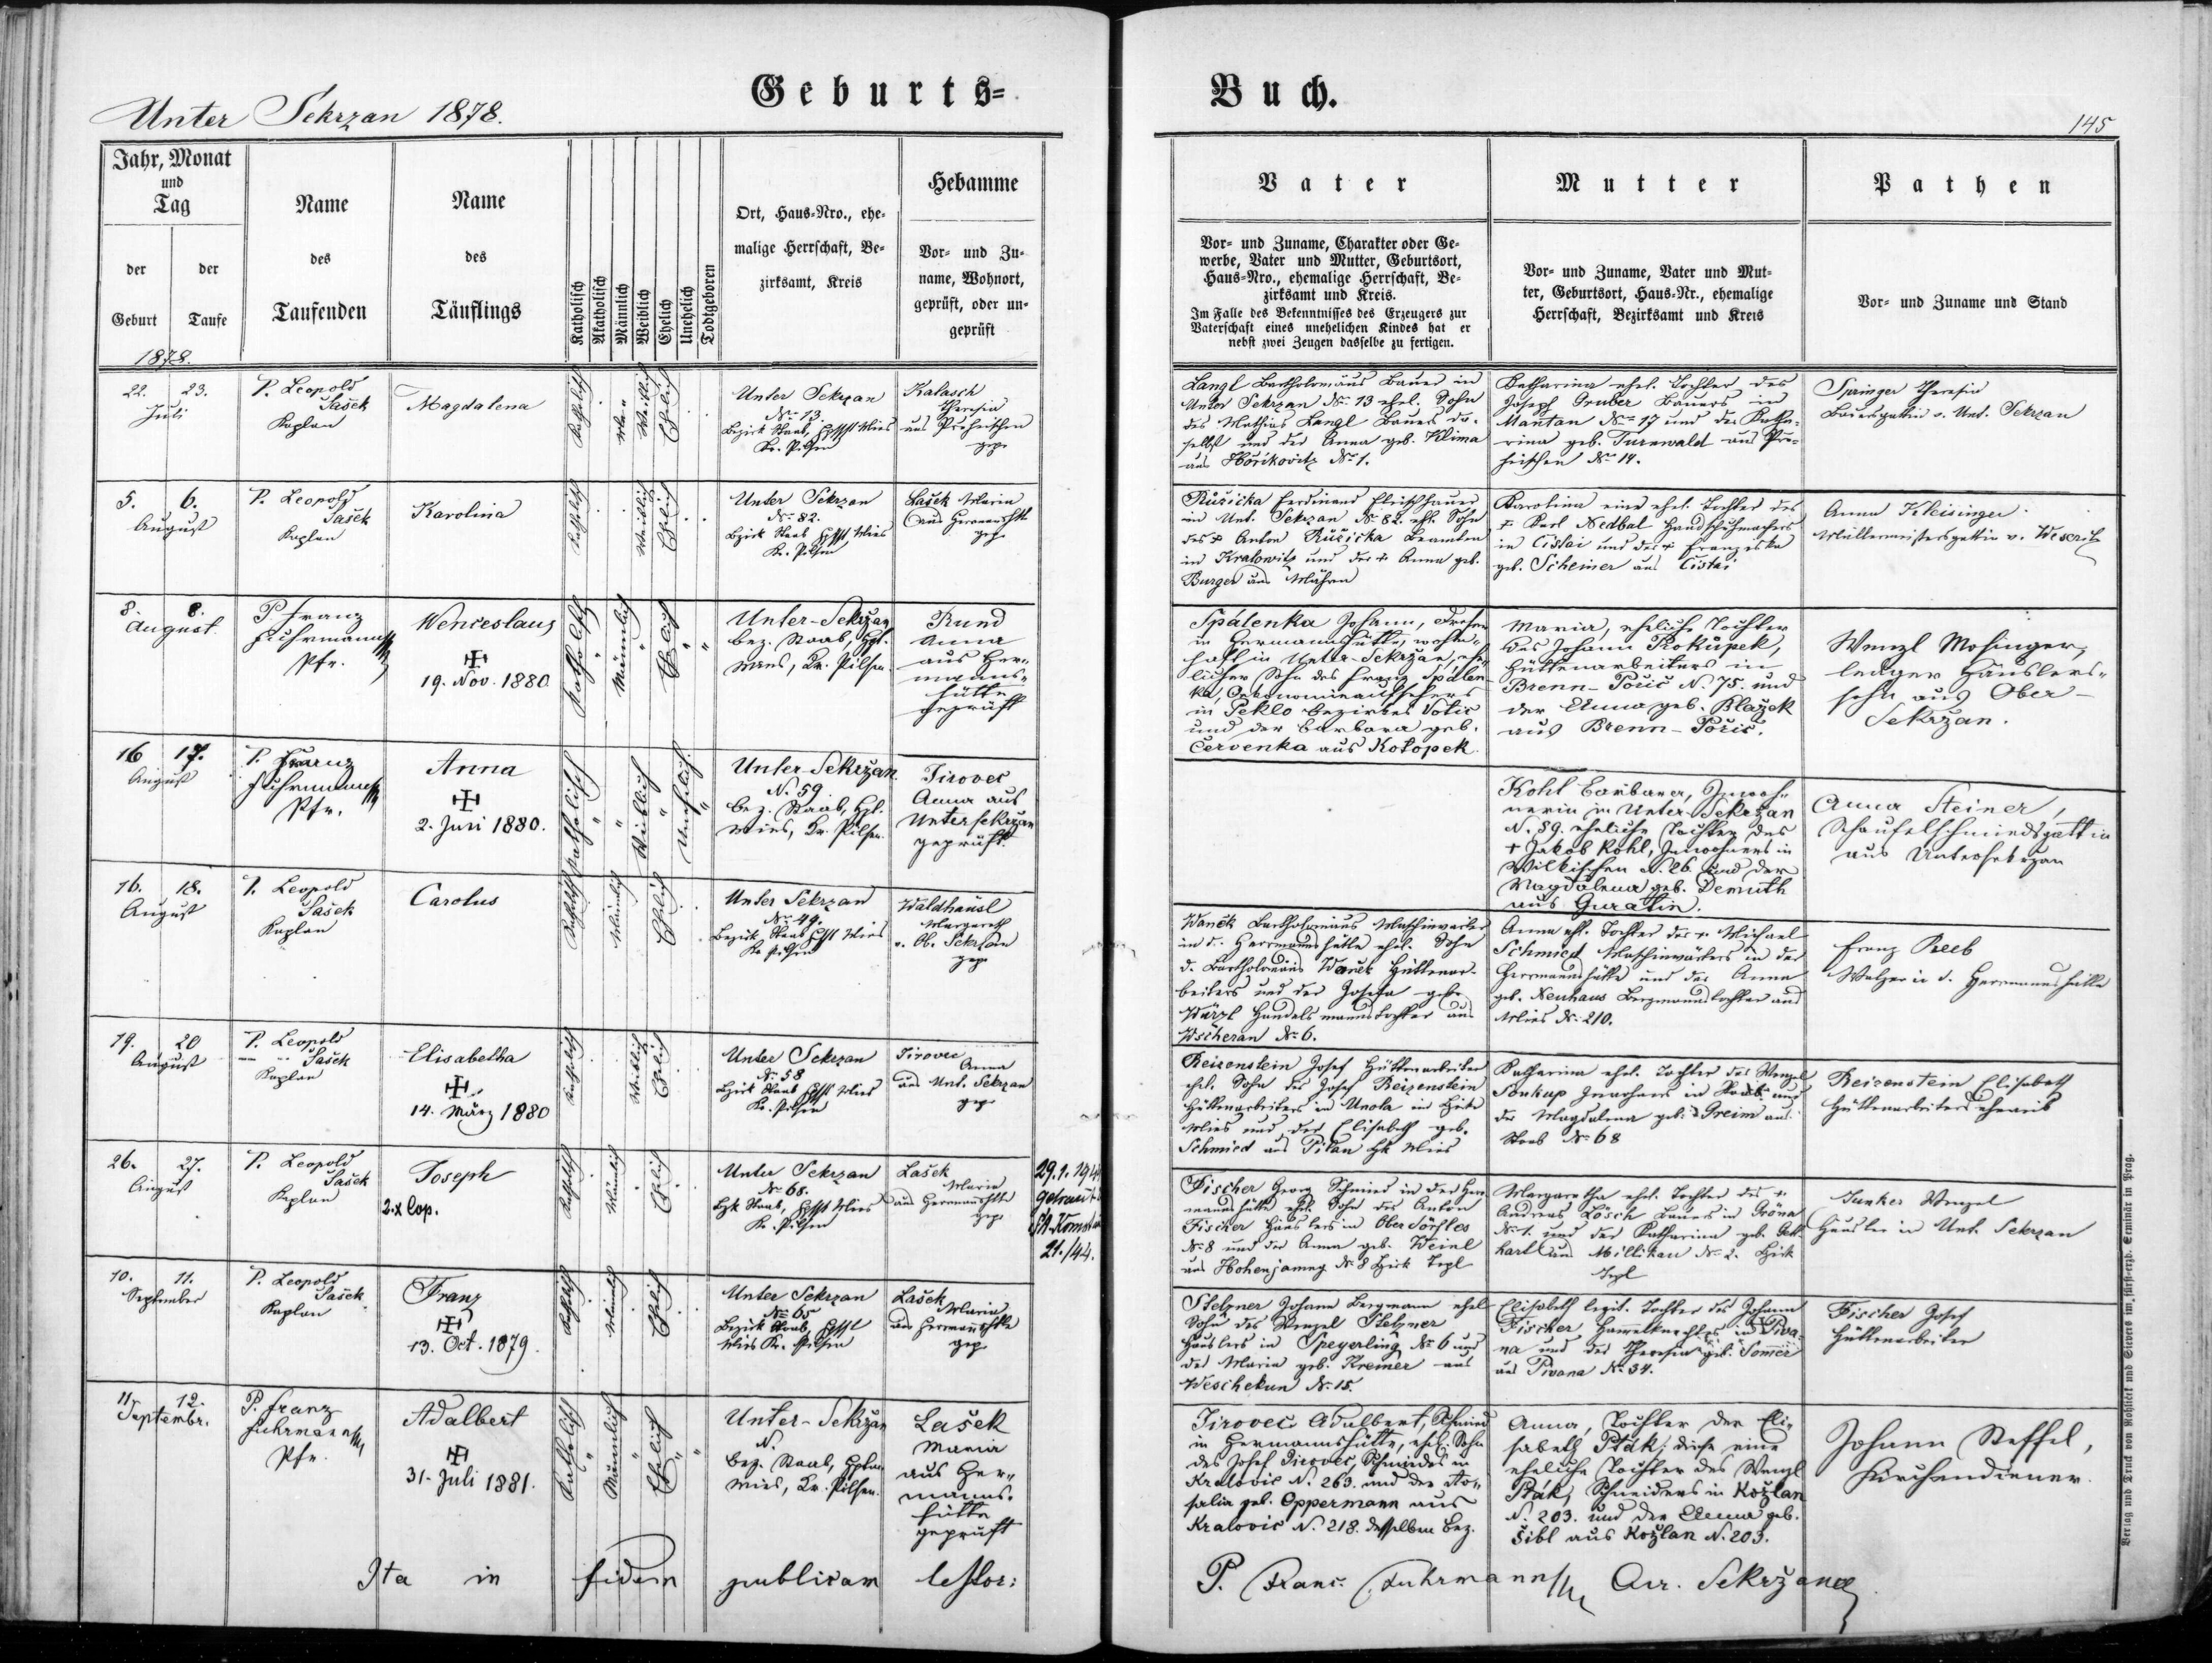 Geburts=
Buch.
Unter Sekrzan 1878.
145
Jahr, Monat
und
Tag
der
Geburt
der
Taufe
1878.
Name
des
Taufenden
Name
des
Täuflings
Katholisch
Akatholisch
Männlich
Weiblich
Ehelich
Unehelich
Todtgeboren
Ort, Haus=Nro., ehe=
malige Herrschaft, Be=
zirksamt, Kreis
Hebamme
Vor= und Zu=
name, Wohnort,
geprüft, oder un=
geprüft
Vater
Vor= und Zuname, Charakter oder Ge=
werbe, Vater und Mutter, Geburtsort,
Haus=Nro., ehemalige Herrschaft, Be=
zirksamt und Kreis.
Im Falle des Bekenntnisses des Erzeugers zur
Vaterschaft eines unehelichen Kindes hat er
nebst zwei Zeugen dasselbe zu fertigen.
Mutter
Vor= und Zuname, Vater und Mut=
ter, Geburtsort, Haus=Nr., ehemalige
Herrschaft, Bezirksamt und Kreis
Pathen
Vor= und Zuname und Stand
22. 23.
Juli
P. Leopold
Sašek
Kaplan
Magdalena
Katholisch
Weiblich
Ehelich
Unter Sekrzan
No. 13.
Bezirk Staab, Hptsft Mies
Kr. Pilsen
Kalasch
Theresia
aus
gepr.
Langl Bartholomäus Bauer in
Unter Sekrzan No. 13 ehel. Sohn
des Mathias Langl Bauers da=
selbst und der Anna geb. Klima
aus Hořikovitz No. 1.
Katharina ehel. Tochter des
Joseph Gruber Bauers in
Mantau No. 17 und der Katha=
rina geb. Turnwald aus
No. 14.
Springer Theresia
Bauersgattin v. Unt. Sekrzan
5. 6.
August
P. Leopold
Sašek
Kaplan
Karolina
Katholisch
Weiblich
Ehelich
Unter Sekrzan
No. 82.
Bezirk Staab Hptsft Mies
Kr. Pilsen
Lašek Maria
aus
gepr.
Růžička Ferdinand Fleischhauer
in Unt. Sekrzan No. 82. ehl. Sohn
des + Anton Růžička Beamten
in Kralowitz und der + Anna geb.
Burger aus Mähren
Karolina eine ehel. Tochter des
+ Karl Nedbal Handschuhmachers
in Čistai und der + Franziska
geb. Scheiner aus Čistai
Anna Kleisinger
Müllermeistersgattin v.
8. 8.
August
P. Franz
Fuhrmann
Pfr.
Wenceslaus
19. Nov. 1880
Katholisch
Männlich
Ehelich
Unter-Sekržan
bez. Staab, Hpt.
Mies, Kr. Pilsen.
Kund
Anna
aus Her=
manns=
hütte
geprüft
Spálenka Johann, Dreher
in Hermannshütte, wohn=
haft in Unter-Sekržan, ehe=
licher Sohn des Franz Spálen=
ka, Oekonomieaufsehers
in Peklo Bezirkes Votic
und der Barbara geb.
Červenka aus Kotopek.
Maria, eheliche Tochter
des Johann Prokůpek,
Hüttenarbeiters in
Brenn-Pořič N. 75. und
der Anna geb. Blažek
aus Brenn-Pořič.
Wenzl Mosinger,
lediger Häuslers=
sohn aus Ober-
Sekržan.
16 17.
August
P. Franz
Fuhrmann
Pfr.
Anna
2. Juni 1880.
Katholisch
Weiblich
Unehelich
Unter-Sekržan
N. 59.
bez. Staab, Hpt.
Mies, Kr. Pilsen.
Jirovec
Anna aus
Untersekržan
geprüft.
Kohl Barbara, Inwoh=
nerin in Unter-Sekržan
N. 89. eheliche Tochter des
+ Jakob Kohl, Inwohners in
Wilkischen N. 26 und der
Magdalena geb. Demuth
aus Guratin.
Anna Steiner,
Schaufelschmiedsgattin
aus Untersekrzan
16. 18.
August
P. Leopold
Sašek
Kaplan
Carolus
Katholisch
Männlich
Ehelich
Unter Sekrzan
No. 49.
Bezirk Staab Hptsft Mies
Kr. Pilsen
Waldhäusl
Margareth
v. Ob. Sekrzan
gepr.
Wanek Bartholomäus Maschinwärter
in d. Herrmannshütte ehel. Sohn
d. Bartholomäus Wanek Hüttenar=
beiters und der Josefa geb.
Würzl Handelsmannstochter aus
Wscheran No. 6.
Anna ehl. Tochter des + Michael
Schmied Maschinwärters in der
Herrmannshütte und der Anna
geb. Neuhaus Bergmannstochter aus
Mies No. 210.
Franz Reeb
Walzer in d. Herrmannshütte
19. 20
August
P. Leopold
Sašek
Kaplan
Elisabetha
14. März 1880
Katholisch
Weiblich
Ehelich
Unter Sekrzan
No. 58
Bezirk Staab Hptsft Mies
Kr. Pilsen
Jirovec
Anna
aus Unt. Sekrzan
gepr.
Beizenstein Josef Hüttenarbeiter
ehel. Sohn des Josef Beizenstein
Hüttenarbeiters in Unola im Bezirk
Mies und der Elisabeth geb.
Schmied aus Pilau Bzk Mies
Katharina ehel. Tochter des Wenzel
Soukup Inwohners in Staab und
der Magdalena geb. Greim aus
Staab No. 68
Beizenstein Elisabeth
Hüttenarbeiters Eheweib
26. 27.
August
P. Leopold
Sašek
Kaplan
Joseph
2.x Cop.
Katholisch
Männlich
Ehelich
Unter Sekrzan
No. 68.
Bzk Staab, Hptsft Mies
Kr. Pilsen
Lašek
Maria
aus
gepr.
29.1.194
getraut
21./44.
Fischer Georg Schmied in der Her=
mannshütte ehel. Sohn des Anton
Fischer Häuslers in Ober Dörfles
No. 8 und der Anna geb. Weinl
aus Hohenjamny No. 8 Bezirk Tepl
Margaretha ehel. Tochter des +
Andreas Lösch Bauers in Gröna
No. 1. und der Katharina geb. Geb=
hartl aus Millikau No. 2. Bezirk
Tepl
Junker Wenzel
Häusler in Unt. Sekrzan
10. 11.
September
P. Leopold
Sašek
Kaplan
Franz
13. Oct. 1879.
Katholisch
Männlich
Ehelich
Unter Sekrzan
No. 65
Bezirk Staab, Hptsft
Mies Kr. Pilsen
Lašek
Maria
gepr.
Stelzner Johann Bergmann ehel
Sohn des Wenzel Stelzner
Häuslers in Speyerling No. 6 und
der Maria geb. Kremer aus
Weschekun No. 15.
Elisabeth legit. Tochter des Johann
Fischer in Piva=
na und der Theresia geb. Sommer
aus Pivana No. 34.
Fischer Josef
Hüttenarbeiter
11. 12.
Septembr.
P. Franz
Fuhrmann
Pfr.
Adalbert
31. Juli 1881.
Katholisch
Männlich
Ehelich
Unter-Sekržan
N.
bez. Staab,
Mies, Kr. Pilsen.
Lašek
Maria
aus Her=
manns=
hütte
geprüft
Jirovec Adalbert, Schmied
in Hermannshütte, ehel. Sohn
des Josef Jirovec, Schmiedes in
Kralovic N. 263. und der Ro=
salia geb. Oppermann aus
Kralovic N. 218. desselben Bez.
Anna, Tochter der Eli=
sabeth Pták, diese eine
eheliche Tochter des Wenzl
Pták, Schneiders in Kožlan
N. 203. und der Anna geb.
Šibl aus Kožlan N. 203.
Johann Steffel,
Kirchendiener.
Ita in fidem publicam testor:
P. Franc. Fuhrmann Cur. Sekržanae
Verlag und Druck von Rohlíček und Sievers im fürst-erzb. Seminär in Prag.